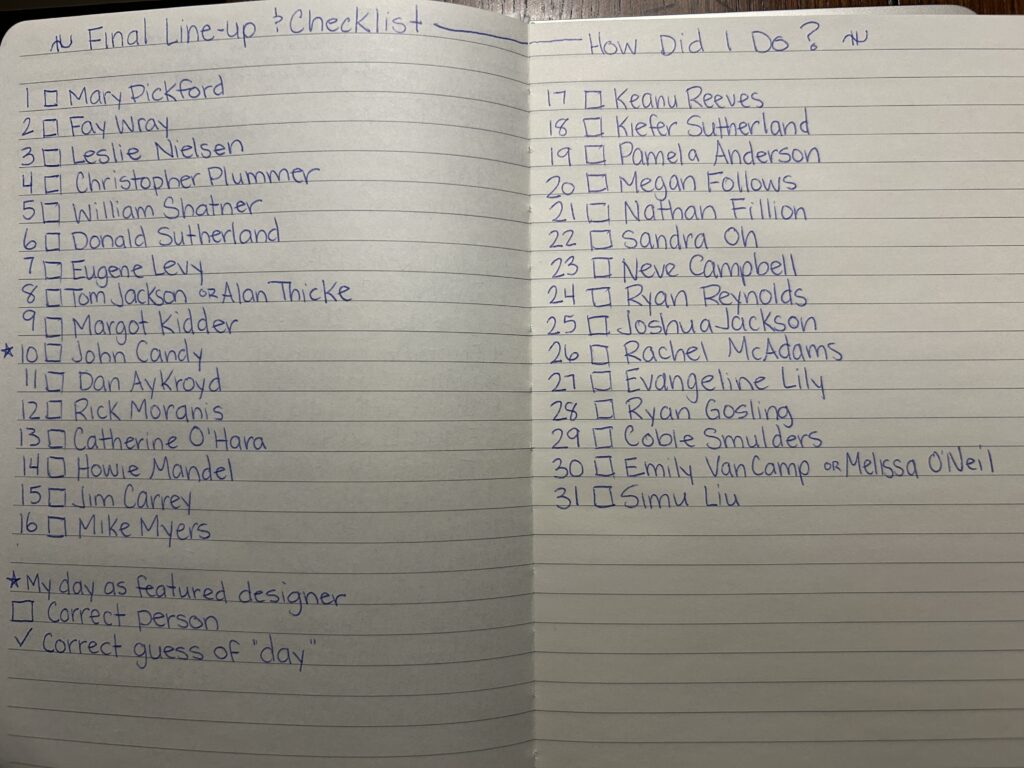 ~ Final Line-up & Checklist
1 □ Mary Pickford
2 □ Fay Wray
3 □ Leslie Nielsen
4 □ Christopher Plummer
5 □ William Shatner
6 □ Donald Sutherland
7 □ Eugene Levy
8 □ Tom Jackson or Alan Thicke
9 □ Margot Kidder
★ 10 □ John Candy
11 □ Dan Aykroyd
12 □ Rick Moranis
13 □ Catherine O'Hara
14 □ Howie Mandel
15 □ Jim Carrey
16 □ Mike Myers
★ My day as featured designer
□ Correct person
✓ Correct guess of "day"
How Did I Do? ~
17 □ Keanu Reeves
18 □ Kiefer Sutherland
19 □ Pamela Anderson
20 □ Megan Follows
21 □ Nathan Fillion
22 □ Sandra Oh
23 □ Neve Campbell
24 □ Ryan Reynolds
25 □ Joshua Jackson
26 □ Rachel McAdams
27 □ Evangeline Lily
28 □ Ryan Gosling
29 □ Cobie Smulders
30 □ Emily VanCamp OR Melissa O'Neil
31 □ Simu Liu